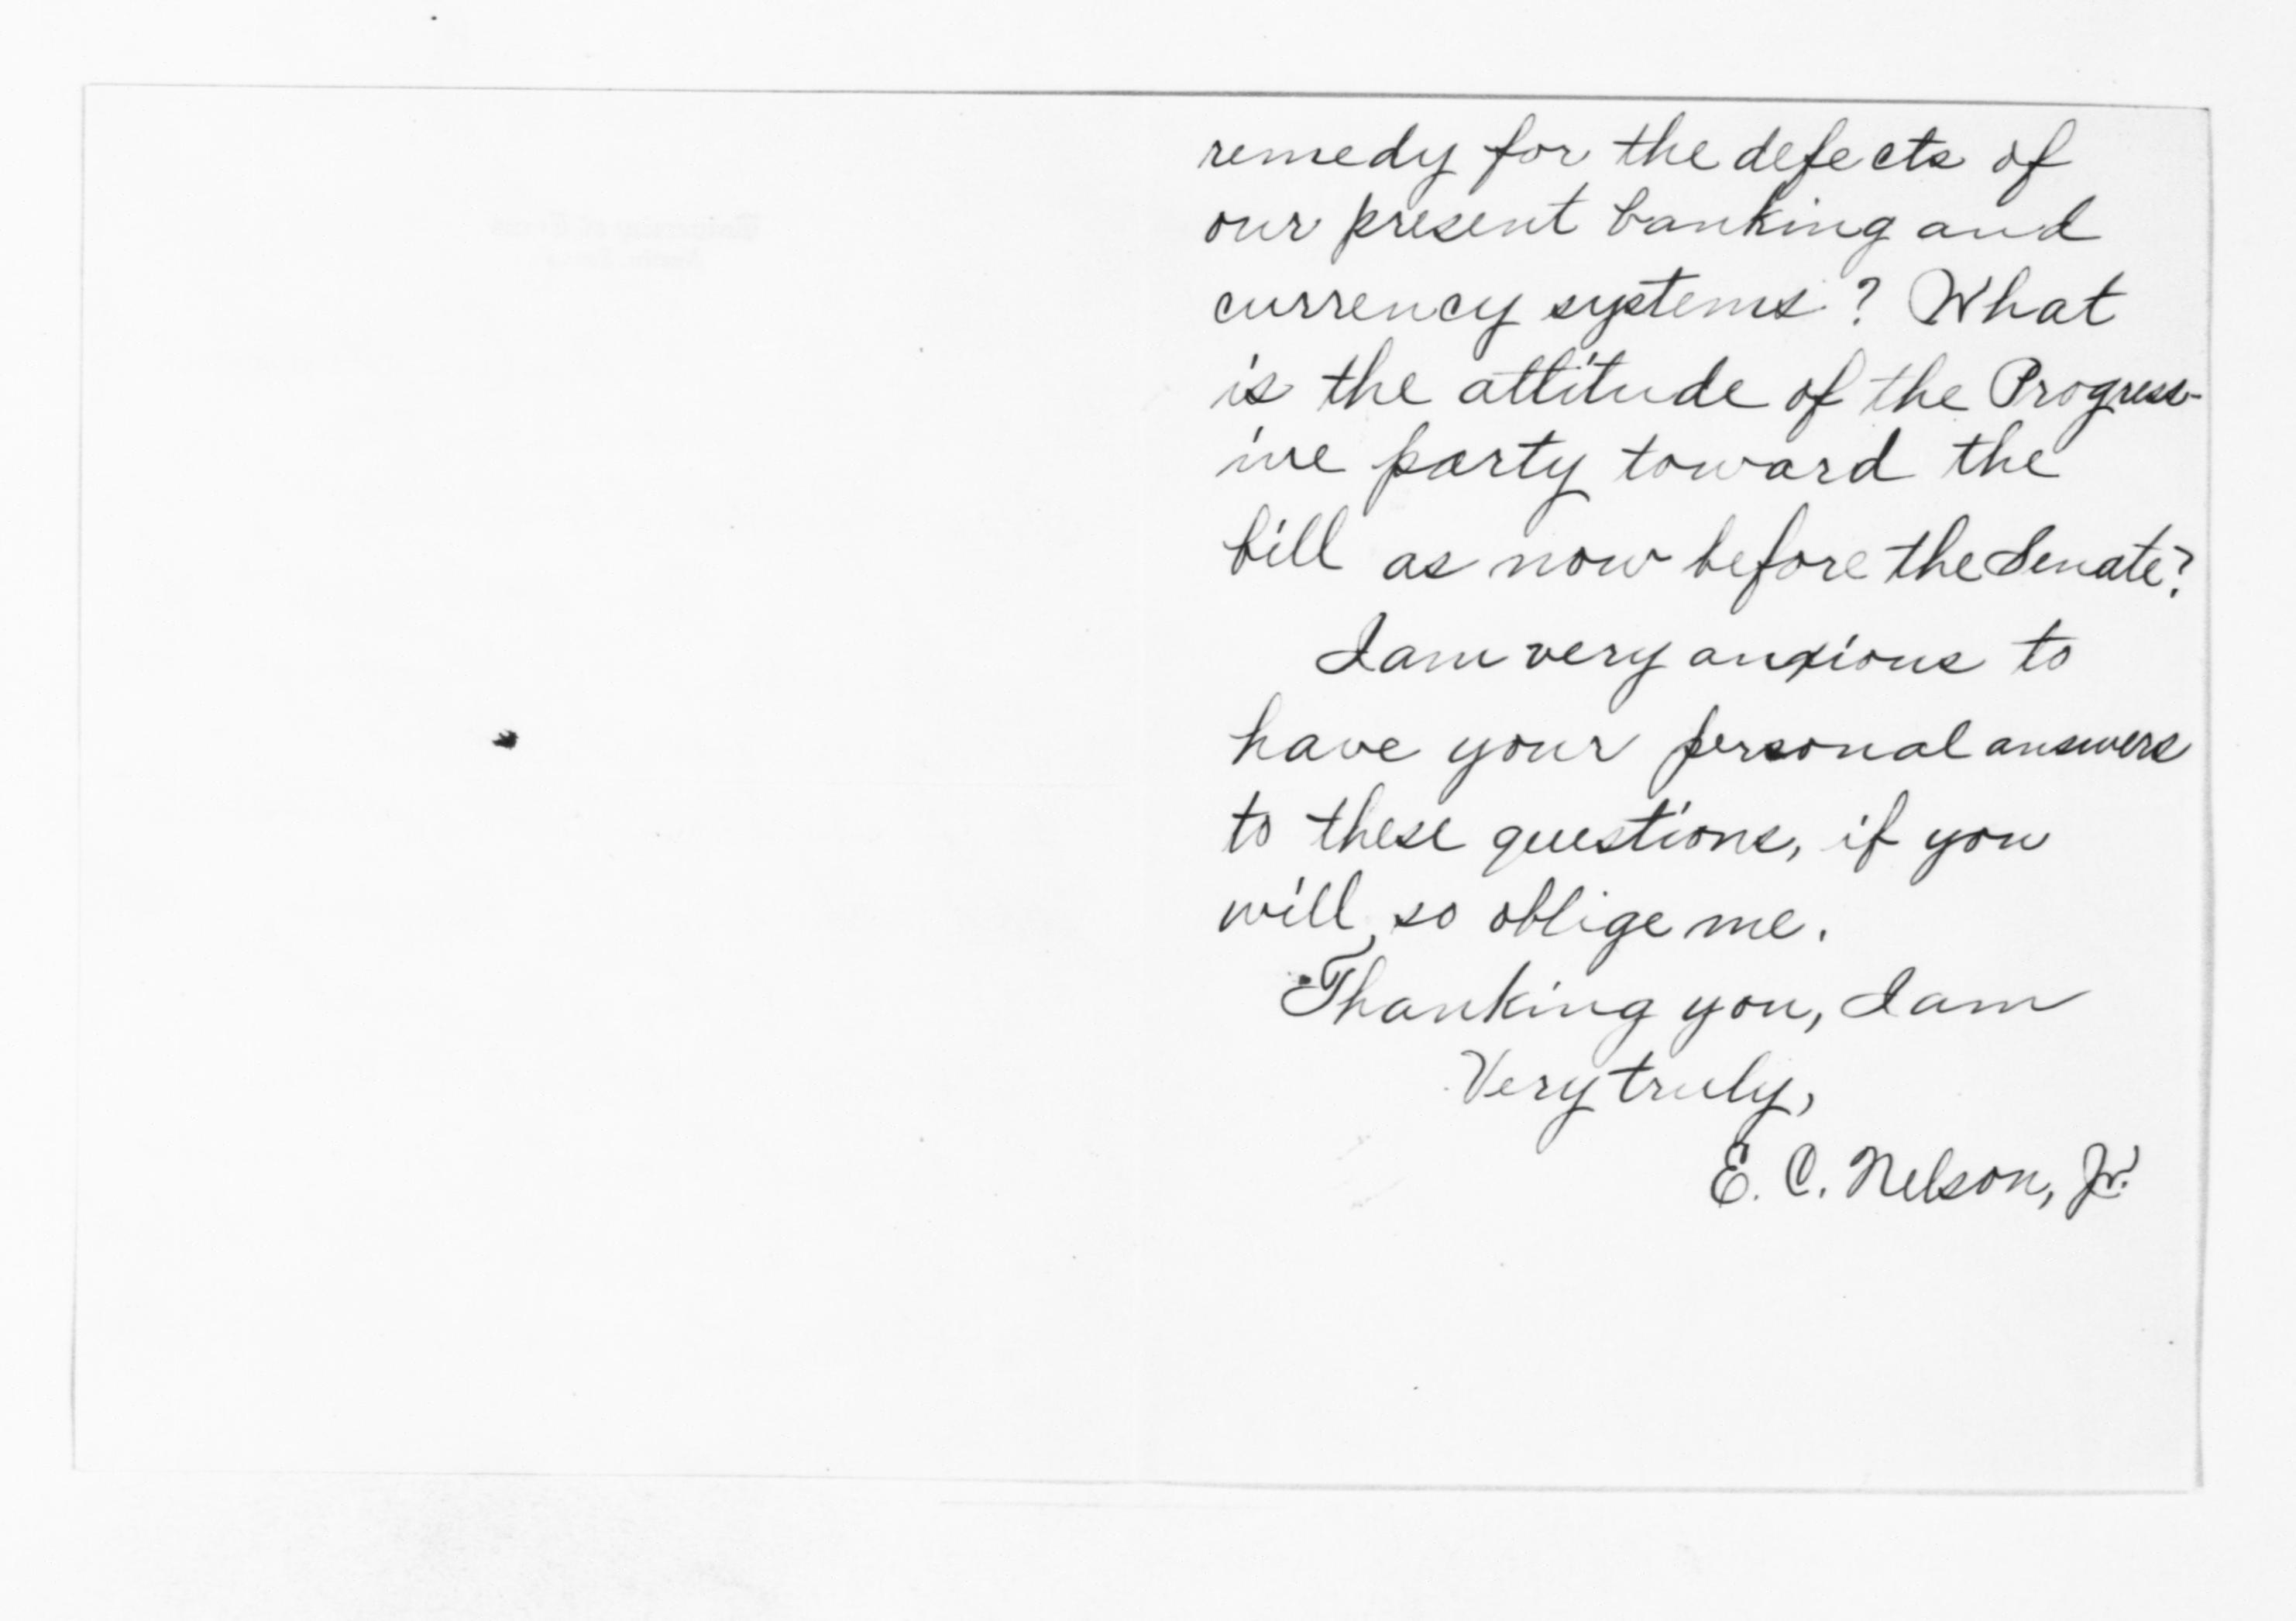 remedy for the defects of
our present banking and
currency systems? What
is the attitude of the Progress-
ive party toward the
bill as now before the Senate?
I am very anxious to
have your personal answers
to these questions, if you
will so oblige me.
Thanking you, I am
Very truly,
E. C. Nelson, Jr.